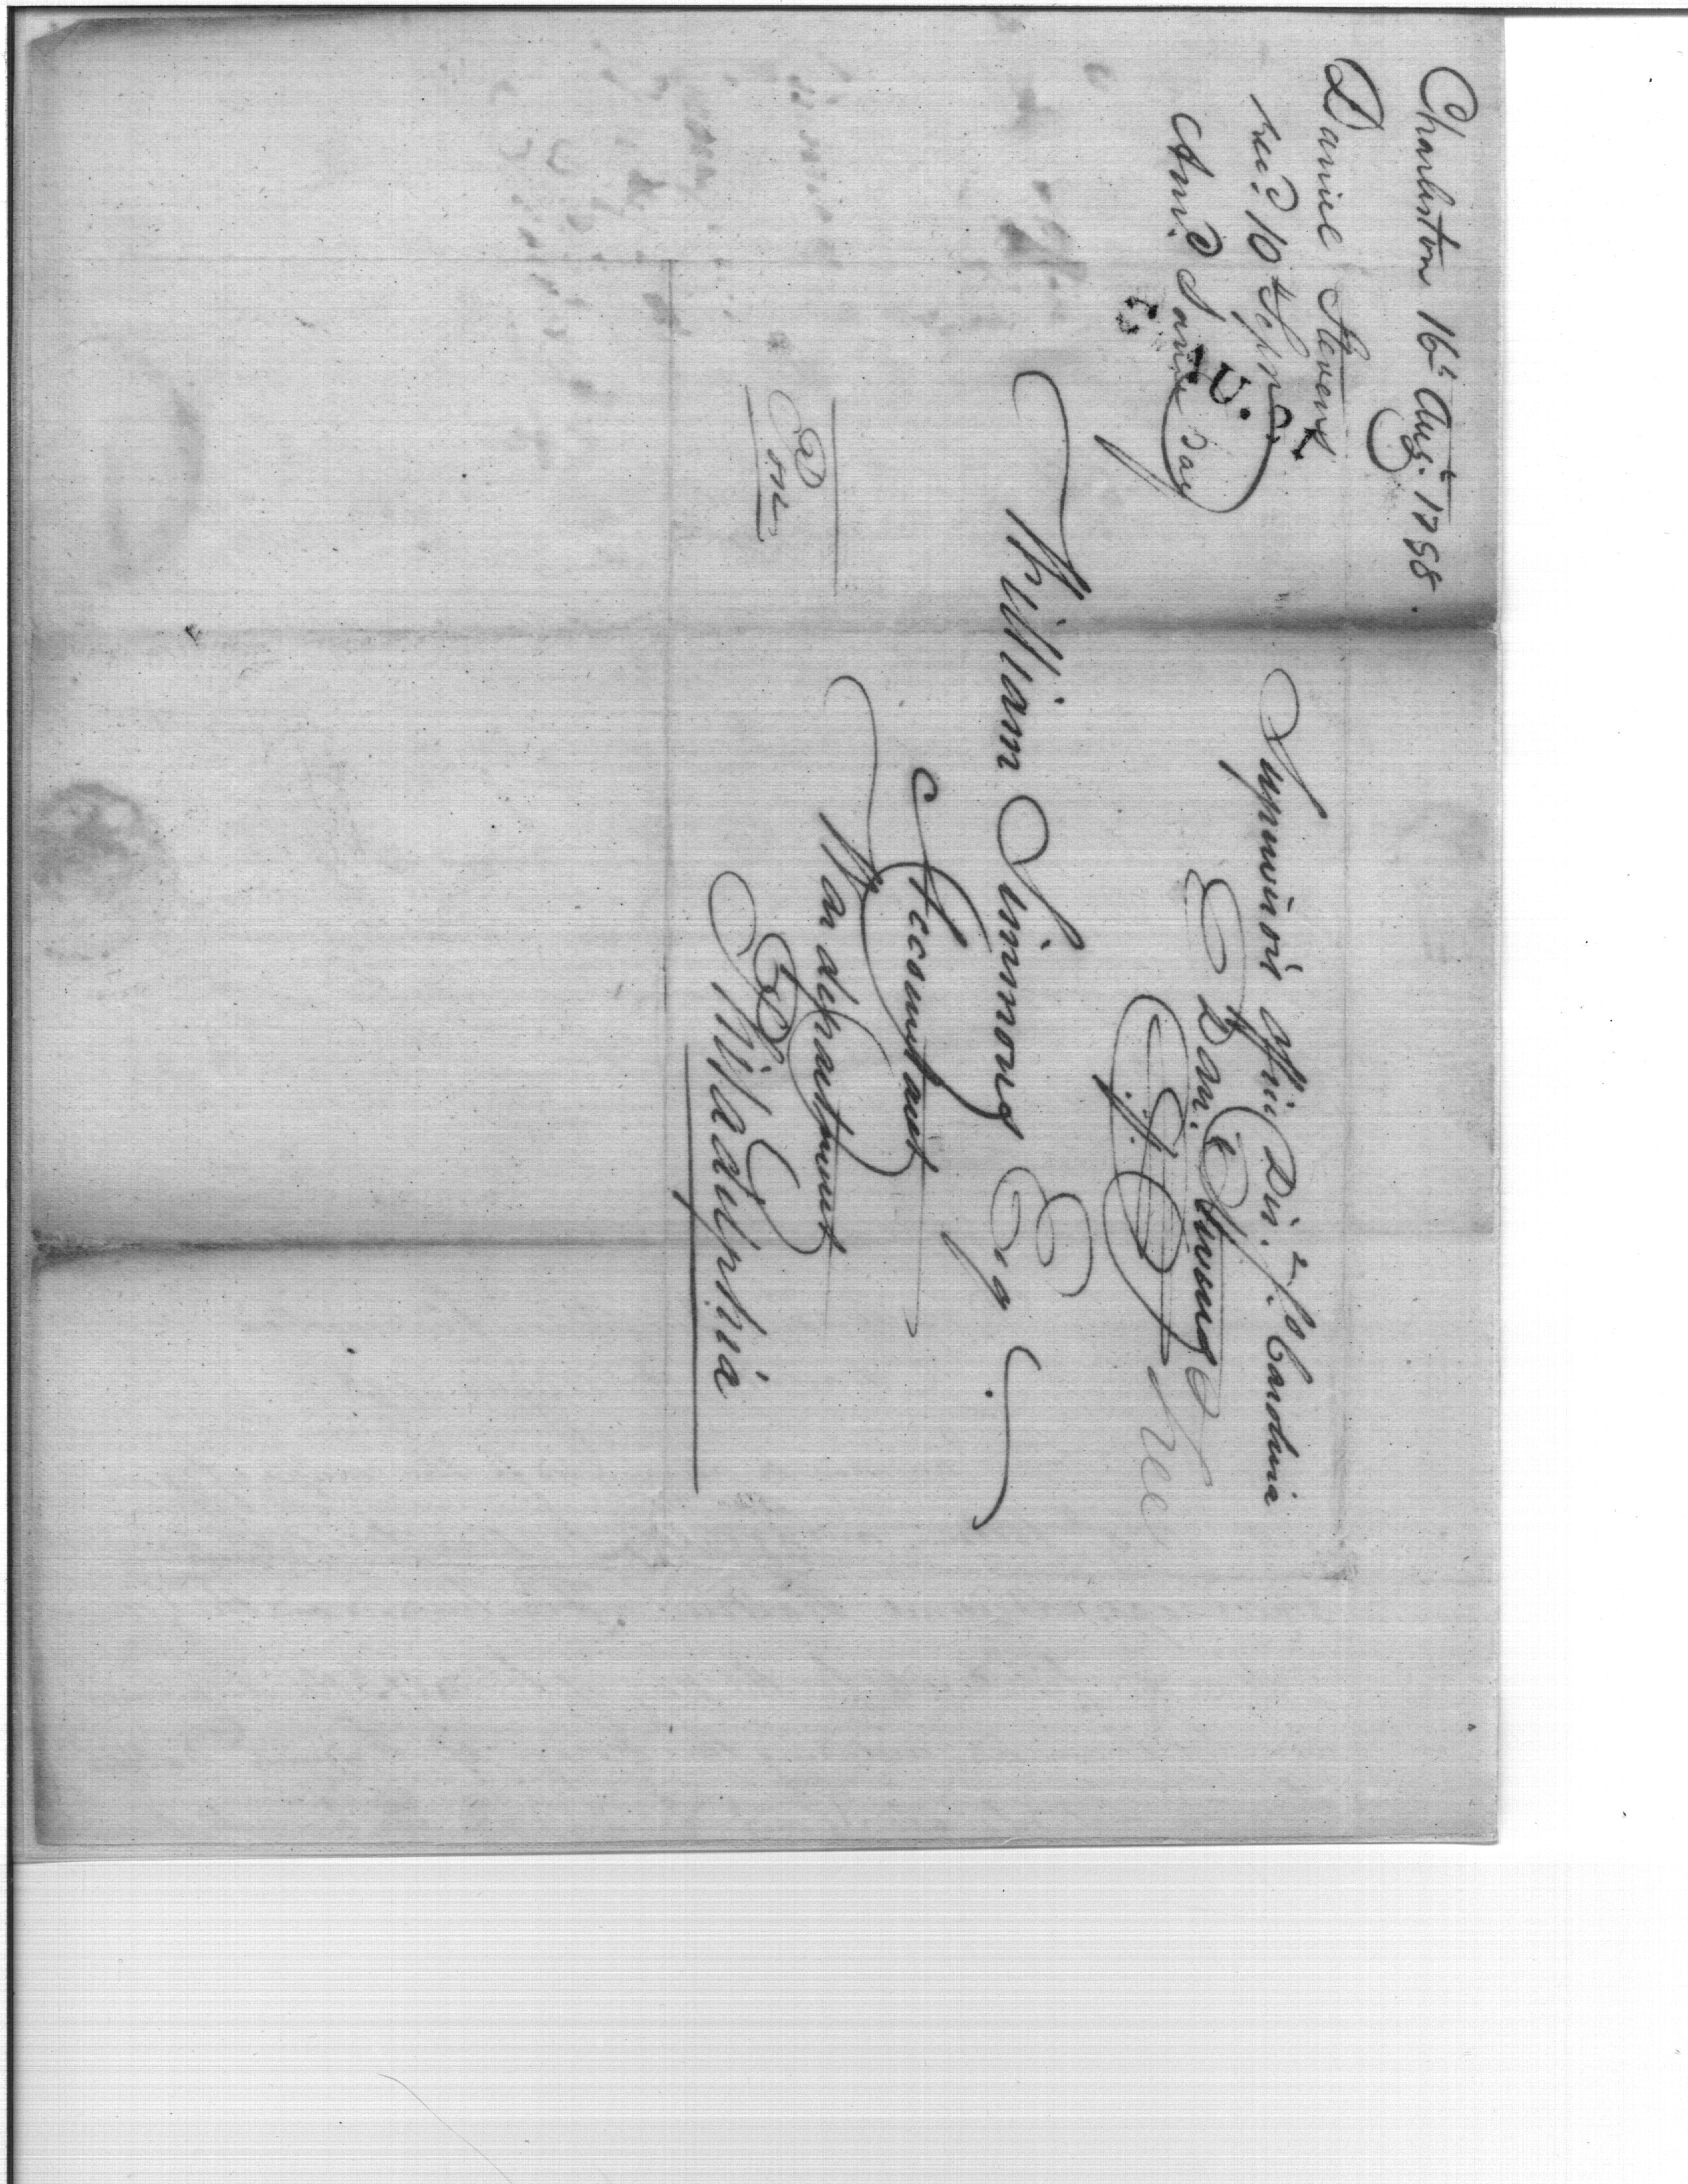 Charleston 16th Augt. 1798.
Daniel Stevens
recd. 10th Sepr.
Ansd. Same day
Supervisors Office Dist. So. Carolina
Danl. Stevens
Free
William Simmons Esq.
Accountant
War department
Philadelphia